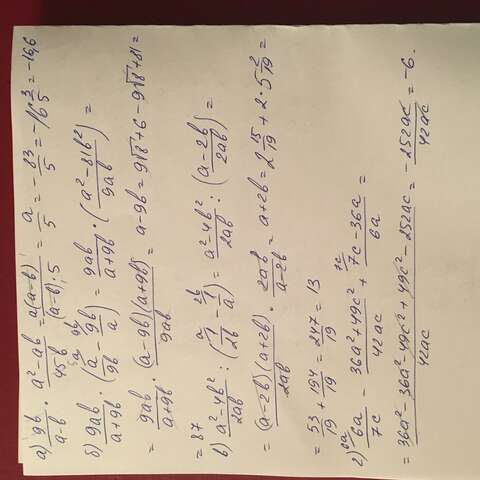 а) 9b/(a-b) · (a²-ab)/(45b) = a(a-b)/((a-b)·5) = a/5 = -83/5 = -16 3/5 = -16,6
б) 9ab/(a+9b) · (a/9b - 9b/a) = 9ab/(a+9b) · ((a²-81b²)/9ab) =
= 9ab/(a+9b) · (a-9b)(a+9b)/9ab = a-9b = 9√8+6-9√8+81 =
= 87
в) (a²-4b²)/2ab : (a/2b - 2b/a) = (a²4b²)/2ab : ((a-2b)/2ab) =
= (a-2b)(a+2b)/2ab · 2ab/(a-2b) = a+2b = 2 15/19 + 2·5 2/19 =
= 53+194/19 = 247/19 = 13
г) 6a/7c - (36a²+49c²)/42ac + (7c-36a)/6a =
= (36a²-36a²-49c²+49c²-252ac)/42ac = -252ac/42ac = -6.